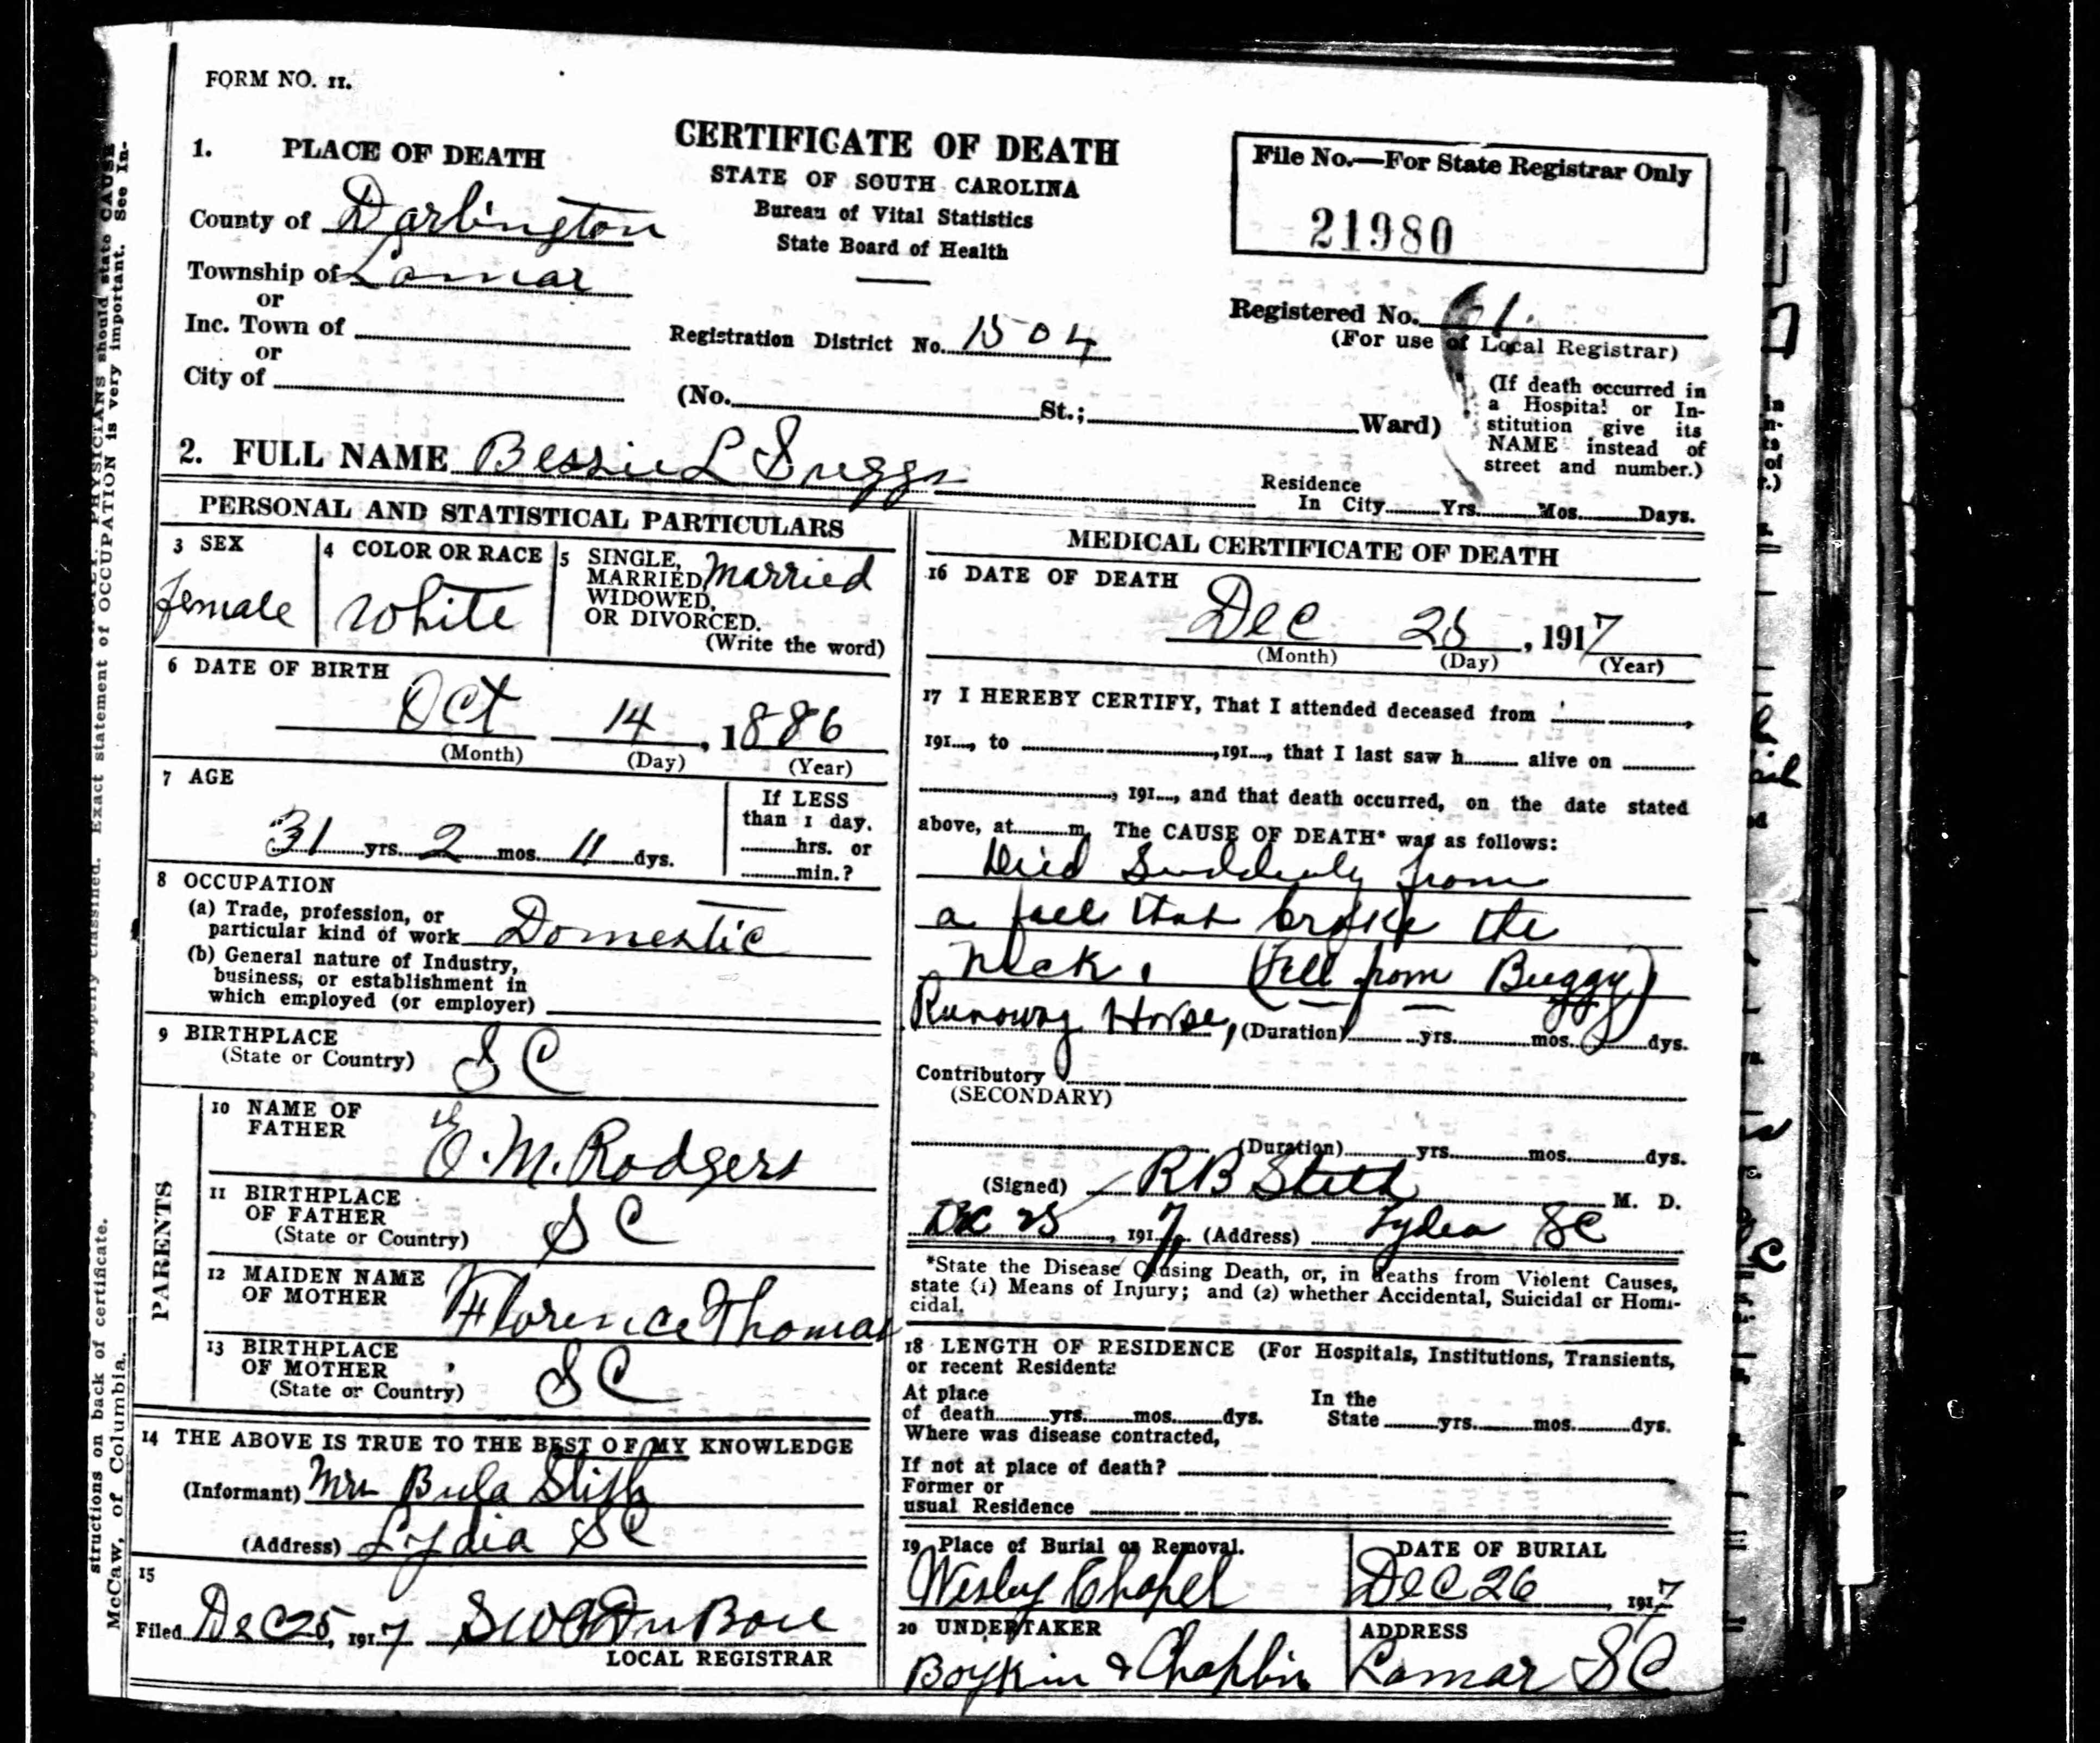 FORM NO. 11.
CERTIFICATE OF DEATH
STATE OF SOUTH CAROLINA
Bureau of Vital Statistics
State Board of Health
File No.—For State Registrar Only
21980
1. PLACE OF DEATH
County of Darlington
Township of Lamar
or
Inc. Town of
or
City of
Registration District No. 1504
Registered No. 61.
(For use of Local Registrar)
(No. St.; Ward)
(If death occurred in
a Hospital or In-
stitution give its
NAME instead of
street and number.)
2. FULL NAME Bessie L Suggs
Residence
In City Yrs. Mos. Days.
PERSONAL AND STATISTICAL PARTICULARS
3 SEX
female
4 COLOR OR RACE
White
5 SINGLE,
MARRIED,
WIDOWED,
OR DIVORCED.
(Write the word)
Married
6 DATE OF BIRTH
Oct 14, 1886
(Month) (Day) (Year)
7 AGE
31 yrs. 2 mos. 11 dys.
If LESS
than 1 day.
hrs. or
min.?
8 OCCUPATION
(a) Trade, profession, or
particular kind of work Domestic
(b) General nature of Industry,
business, or establishment in
which employed (or employer)
9 BIRTHPLACE
(State or Country) S C
PARENTS
10 NAME OF
FATHER E. M. Rodgers
11 BIRTHPLACE
OF FATHER
(State or Country) S C
12 MAIDEN NAME
OF MOTHER Florence Thomas
13 BIRTHPLACE
OF MOTHER
(State or Country) S C
14 THE ABOVE IS TRUE TO THE BEST OF MY KNOWLEDGE
(Informant) Mrs Bula Stith
(Address) Lydia SC
15
Filed Dec 25, 1917
LOCAL REGISTRAR
MEDICAL CERTIFICATE OF DEATH
16 DATE OF DEATH
Dec 25, 1917
(Month) (Day) (Year)
17 I HEREBY CERTIFY, That I attended deceased from
191..., to ,191..., that I last saw h alive on
, 191..., and that death occurred, on the date stated
above, at m. The CAUSE OF DEATH* was as follows:
Died Suddenly from
a fall that broke the
Neck. (Fell from Buggy)
Runaway Horse, (Duration) yrs. mos. dys.
Contributory
(SECONDARY)
(Duration) yrs. mos. dys.
(Signed) RB Stith M. D.
Dec 25, 1917. (Address) Lydia SC
*State the Disease Causing Death, or, in deaths from Violent Causes,
state (1) Means of Injury; and (2) whether Accidental, Suicidal or Homi-
cidal.
18 LENGTH OF RESIDENCE (For Hospitals, Institutions, Transients,
or recent Residents
At place
of death yrs. mos. dys.
In the
State yrs. mos. dys.
Where was disease contracted,
If not at place of death?
Former or
usual Residence
19 Place of Burial or Removal.
Wesley Chapel
DATE OF BURIAL
Dec 26, 1917
20 UNDERTAKER
Boykin & Chaplin
ADDRESS
Lamar SC
structions on back of certificate.
McCaw, of Columbia.